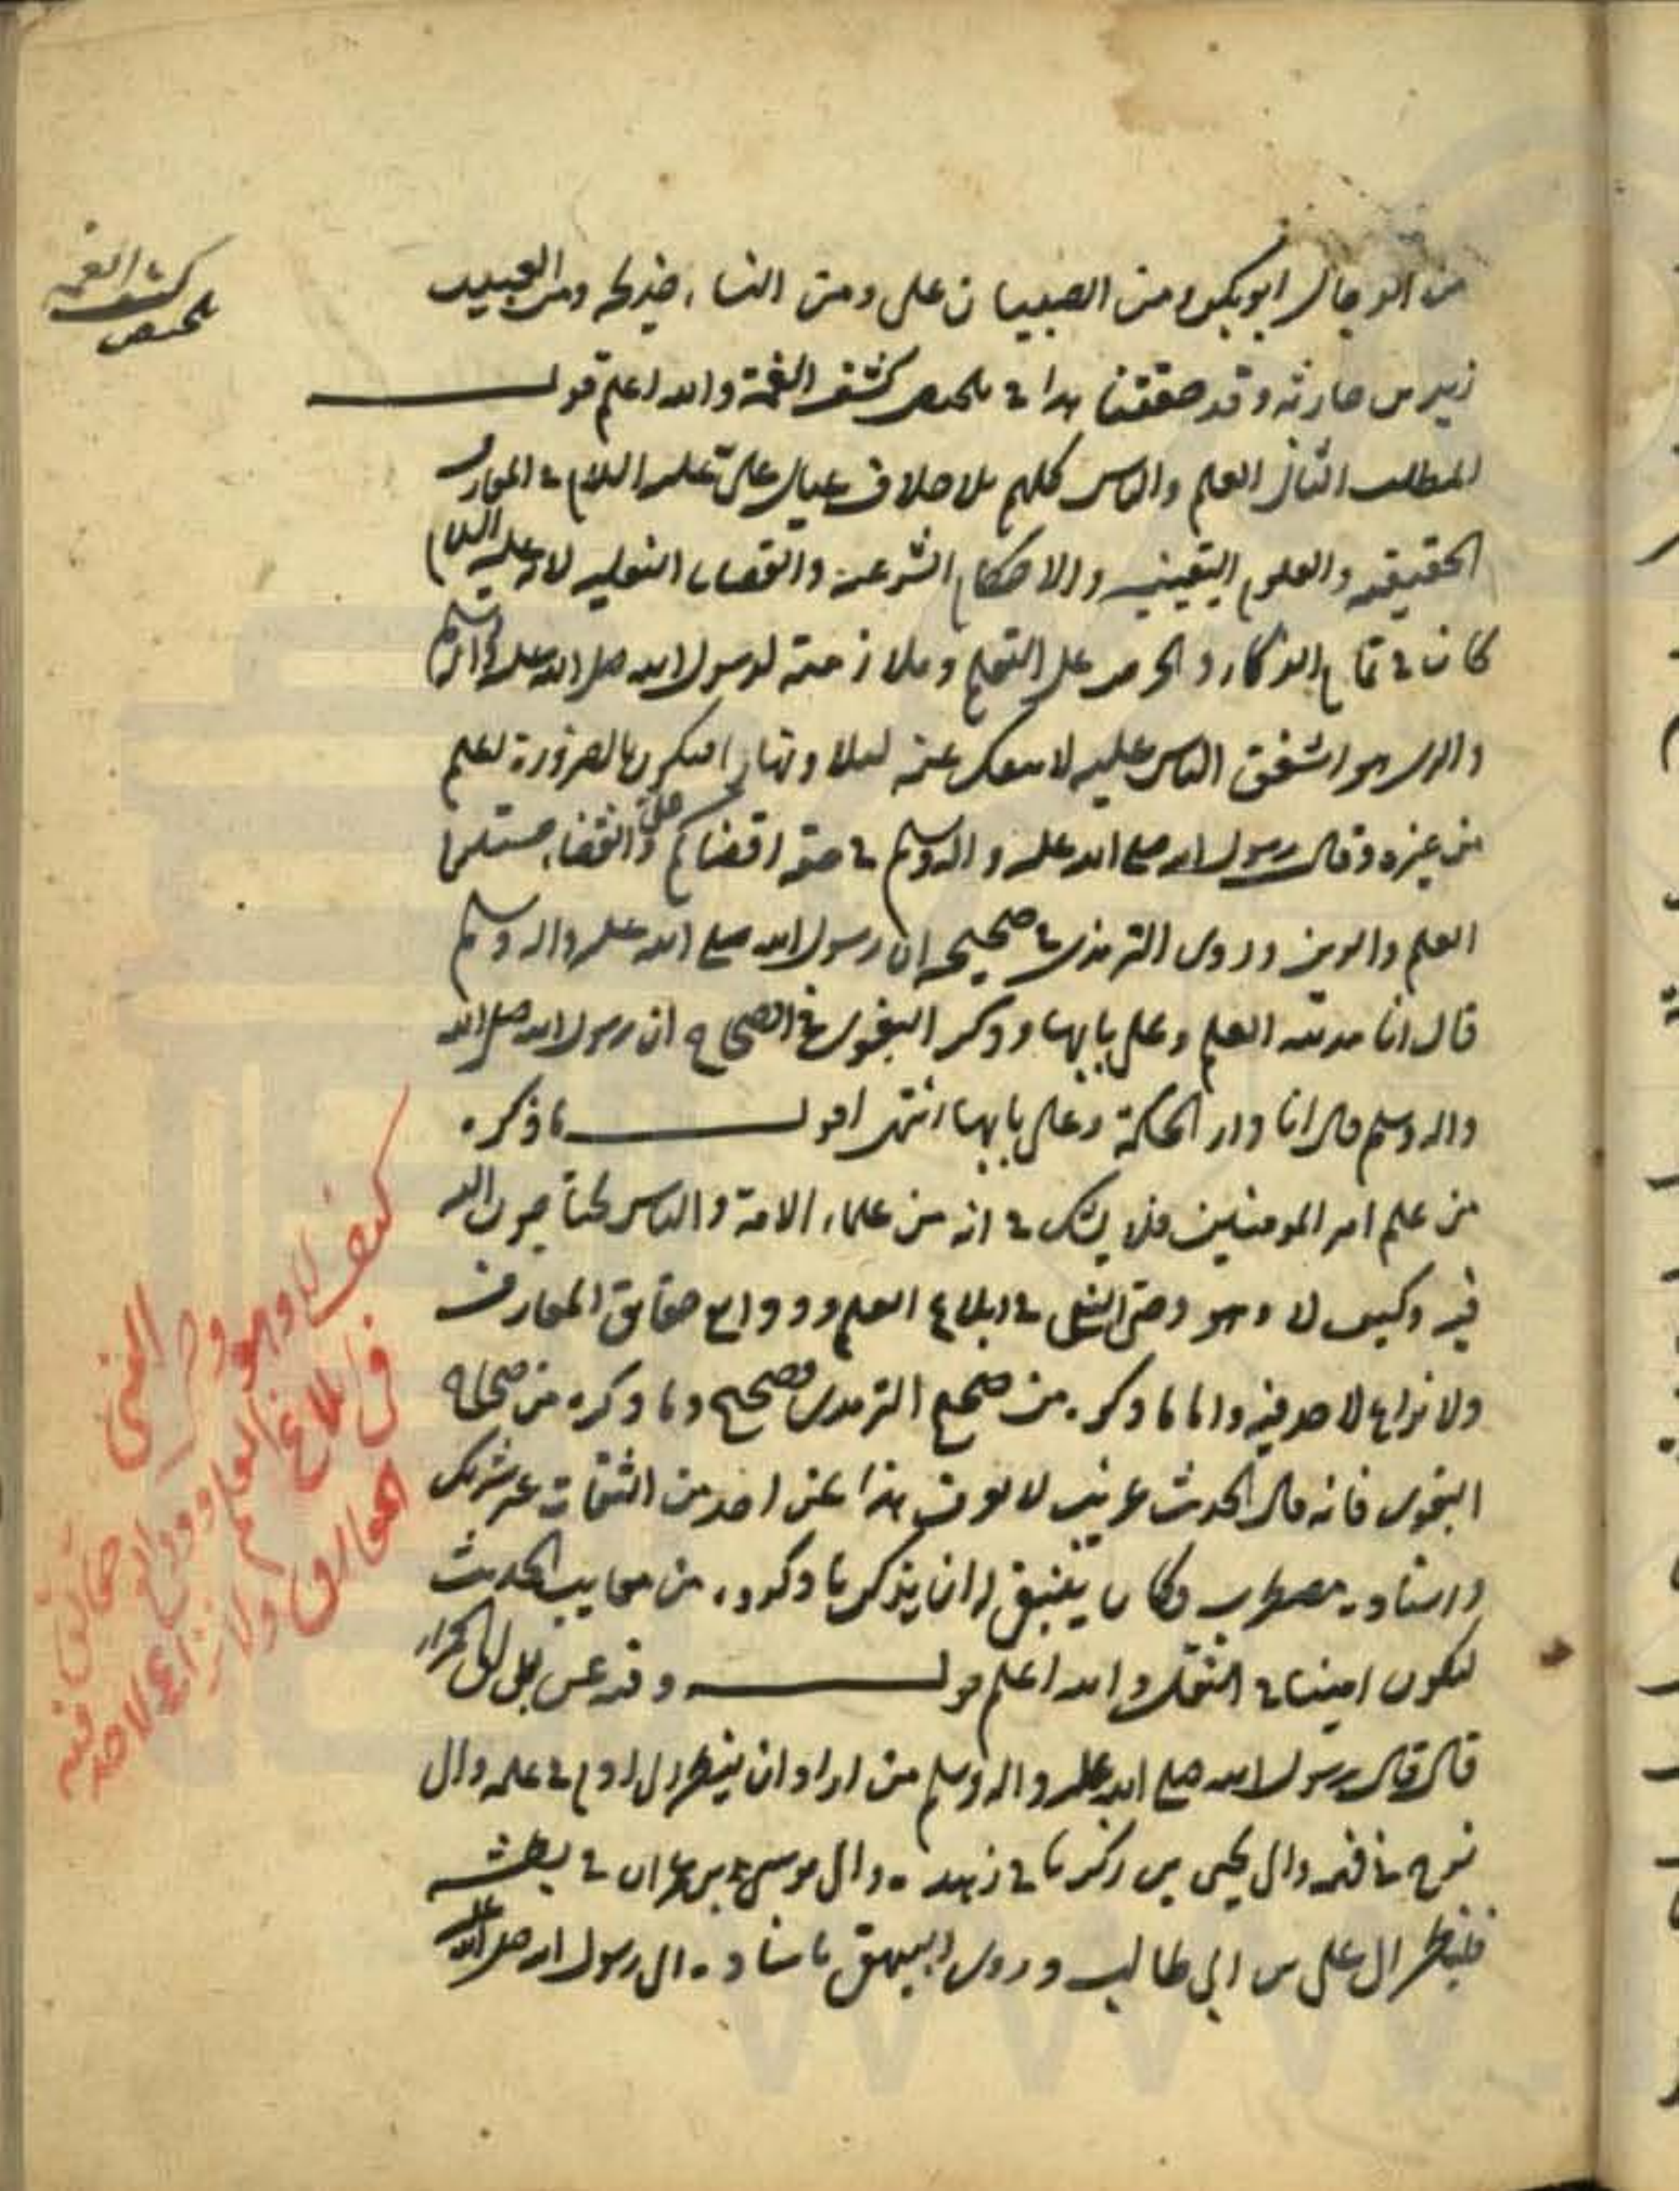 من الرجال ابو بكر ومن الصبيان على ومن النساء خديجة ومن العبيد
زيد بن حارثه وقد حققنا هذا في ملخص كشف الغمة والله اعلم قوله
المطلب الثاني العلم والناس كلهم بلا خلاف عيال علي عليه السلام في المعارف
الحقيقيه والعلوم اليقينيه والاحكام الشرعيه والقضايا النقليه لانه عليه السلام
كان في الذكاء والحرص على التعلم وملازمته لرسول الله صلى الله عليه واله وسلم
والذي هو اشفق الناس عليه لا ينفك عنه ليلا ونهارا فيكون بالضرورة اعلم
من غيره وقال رسول الله صلى الله عليه واله وسلم في حقه اقضاكم علي والقضاء يستلزم
العلم والدين وروى الترمذي في صحيحه ان رسول الله صلى الله عليه واله وسلم
قال انا مدينه العلم وعلي بابها وذكر البغوي في الصحاح ان رسول الله صلى الله
واله وسلم قال انا دار الحكمة وعلي بابها انتهى اقول ما ذكره
من علم امير المومنين فلا يشك في انه من علماء الامة والناس محتاجون اليه
فيه وكيف لا وهو وصي النبي في ابلاغ العلم وودايع حقايق المعارف
ولا نزاع لاحد فيه واما ما ذكره من صحيح الترمذي فصحيح وما ذكره من صحاح
البغوي فانه قال الحديث غريب لا يعرف هذا عن احد من الثقات غير شريك
واسناده مضطرب وكان ينبغي ان يذكر ما ذكروه من معايب الحديث
ليكون امينا في النقل والله اعلم قوله وقد
قال قال رسول الله صلى الله عليه واله وسلم من اراد ان ينظر الى ادم في علمه والى
نوح في فهمه والى يحيى بن زكريا في زهده والى موسى بن عمران في بطشه
فلينظر الى علي بن ابي طالب وروى البيهقي باسناده الى رسول الله صلى الله عليه
كشف الغمه
ملخص
كيف لا وهو وصي النبي
في ابلاغ العلم وودايع حقائق
المعارف ولا نزاع لاحد فيه